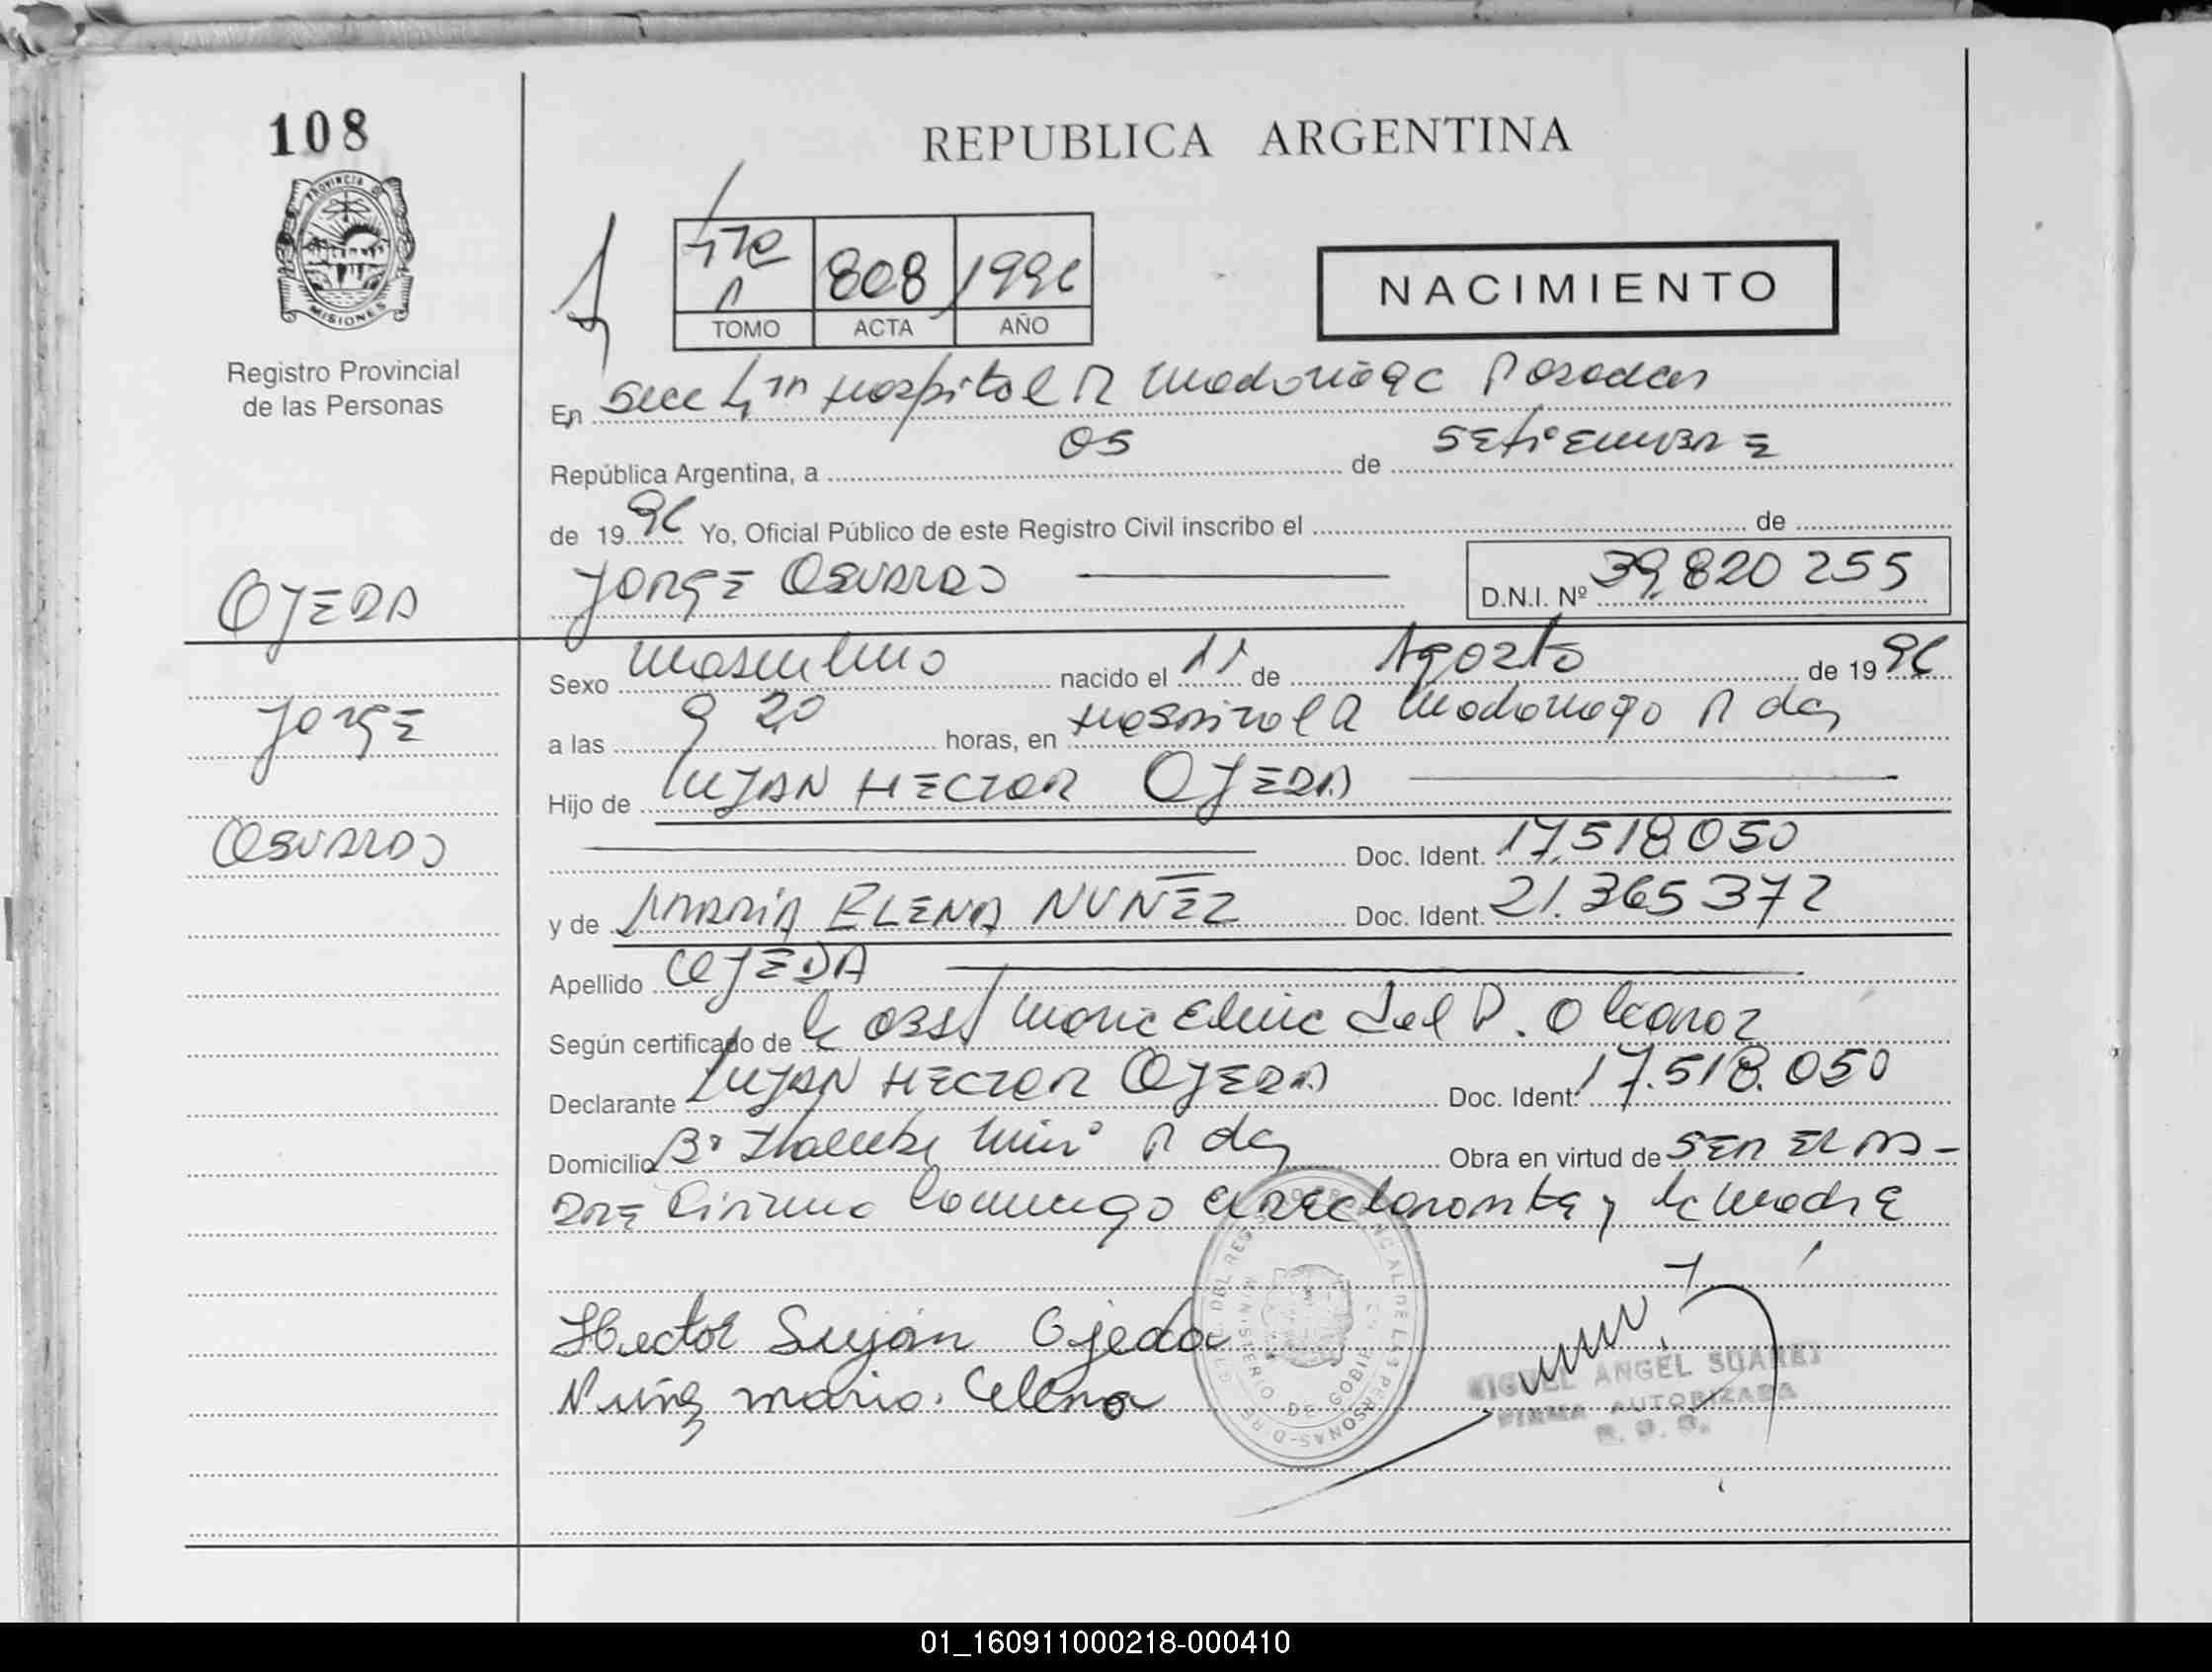 108
REPUBLICA ARGENTINA
PROVINCIA DE
MISIONES
Registro Provincial
de las Personas
808 1996
TOMO ACTA AÑO
NACIMIENTO
En Secc Hospital R Madariaga Posadas
República Argentina, a 05 de SEtiEMBRE
de 1996 Yo, Oficial Público de este Registro Civil inscribo el de
OJEDA
JORGE OSVALDO
D.N.I. Nº 39.820 255
Sexo masculino nacido el 11 de Agosto de 1996
JorgE
a las 9 20 horas, en Hospital R Madariaga P das
Hijo de LUJAN HECTOR OJEDA
OSVALDO
Doc. Ident. 17.518.050
y de MARÍA ELENA NUÑEZ Doc. Ident. 21.365 372
Apellido OJEDA
Según certificado de la Obst Maria del
Declarante LUJAN HECTOR OJEDA Doc. Ident. 17.518.050
Domicilio Bº P das Obra en virtud de SER EL PA-
DRE Firman conmigo el declarante y la madre
Hector Luján Ojeda
Nuñez maria. Elena
MIGUEL ANGEL SUAREZ
FIRMA AUTORIZADA
MINISTERIO DE GOBIE
01_160911000218-000410